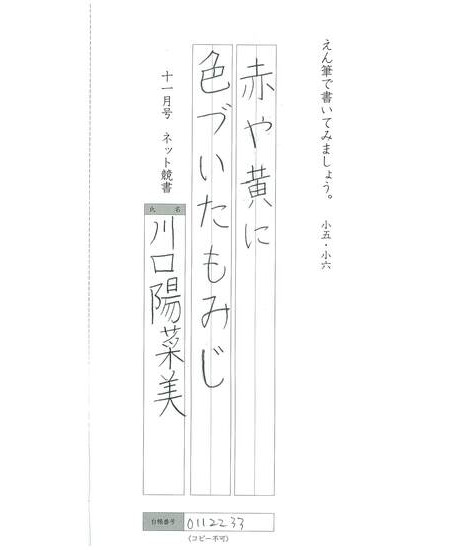 えん筆で書いてみましょう。 小五・小六
赤や黄に
色づいたもみじ
十一月号 ネット競書
氏名
川口陽菜美
台帳番号 0112233
(コピー不可)